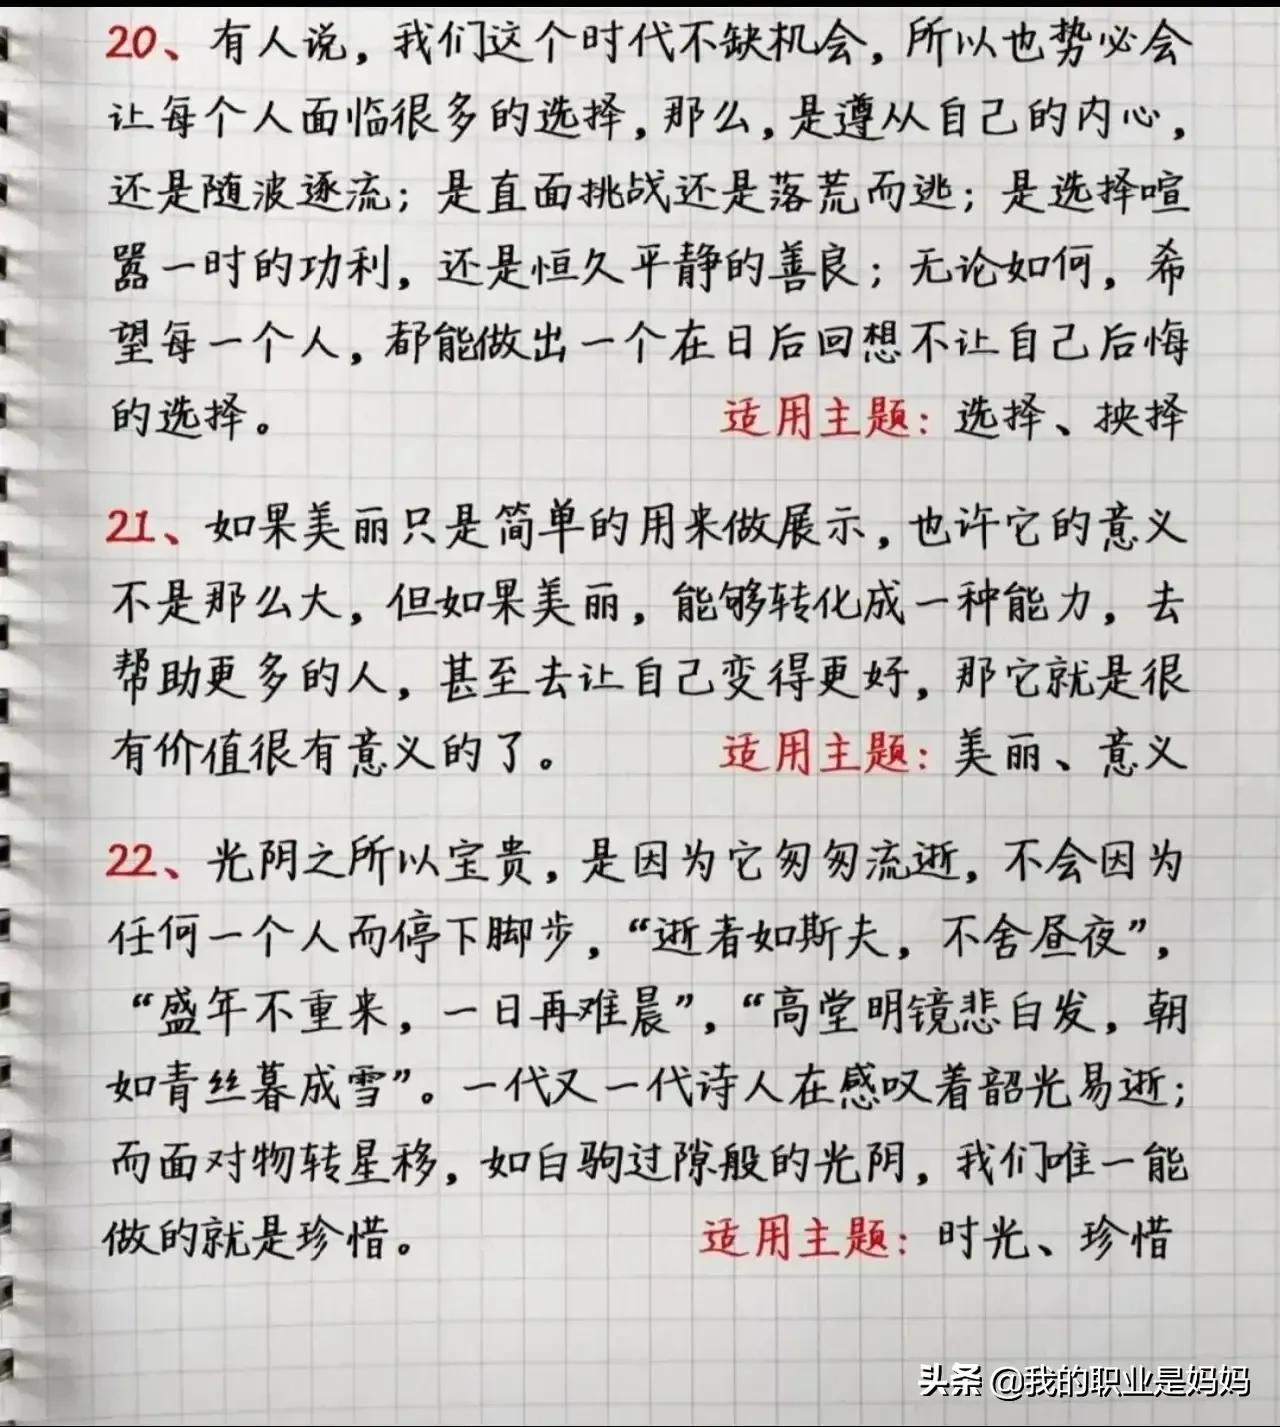 20、有人说，我们这个时代不缺机会，所以也势必会
让每个人面临很多的选择，那么，是遵从自己的内心，
还是随波逐流；是直面挑战还是落荒而逃；是选择喧
嚣一时的功利，还是恒久平静的善良；无论如何，希
望每一个人，都能做出一个在日后回想不让自己后悔
的选择。 适用主题：选择、抉择
21、如果美丽只是简单的用来做展示，也许它的意义
不是那么大，但如果美丽，能够转化成一种能力，去
帮助更多的人，甚至去让自己变得更好，那它就是很
有价值很有意义的了。 适用主题：美丽、意义
22、光阴之所以宝贵，是因为它匆匆流逝，不会因为
任何一个人而停下脚步，“逝者如斯夫，不舍昼夜”，
“盛年不重来，一日再难晨”，“高堂明镜悲白发，朝
如青丝暮成雪”。一代又一代诗人在感叹着韶光易逝；
而面对物转星移，如白驹过隙般的光阴，我们唯一能
做的就是珍惜。 适用主题：时光、珍惜
头条 @我的职业是妈妈